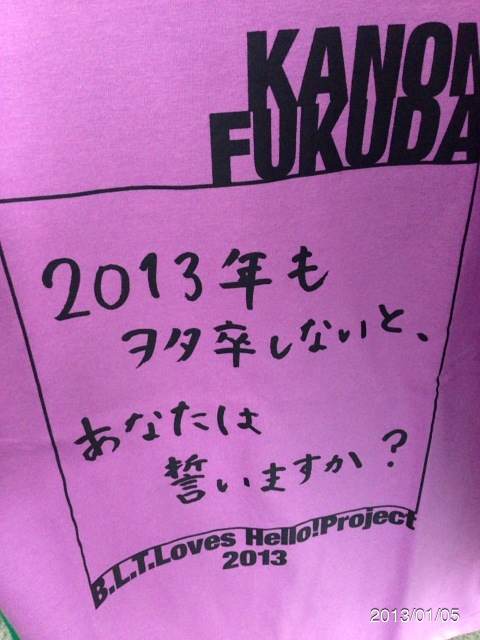 KANON
FUKUDA
2013年も
ヲタ卒しないと、
あなたは
誓いますか?
B.L.T.Loves Hello!Project
2013
2013/01/05